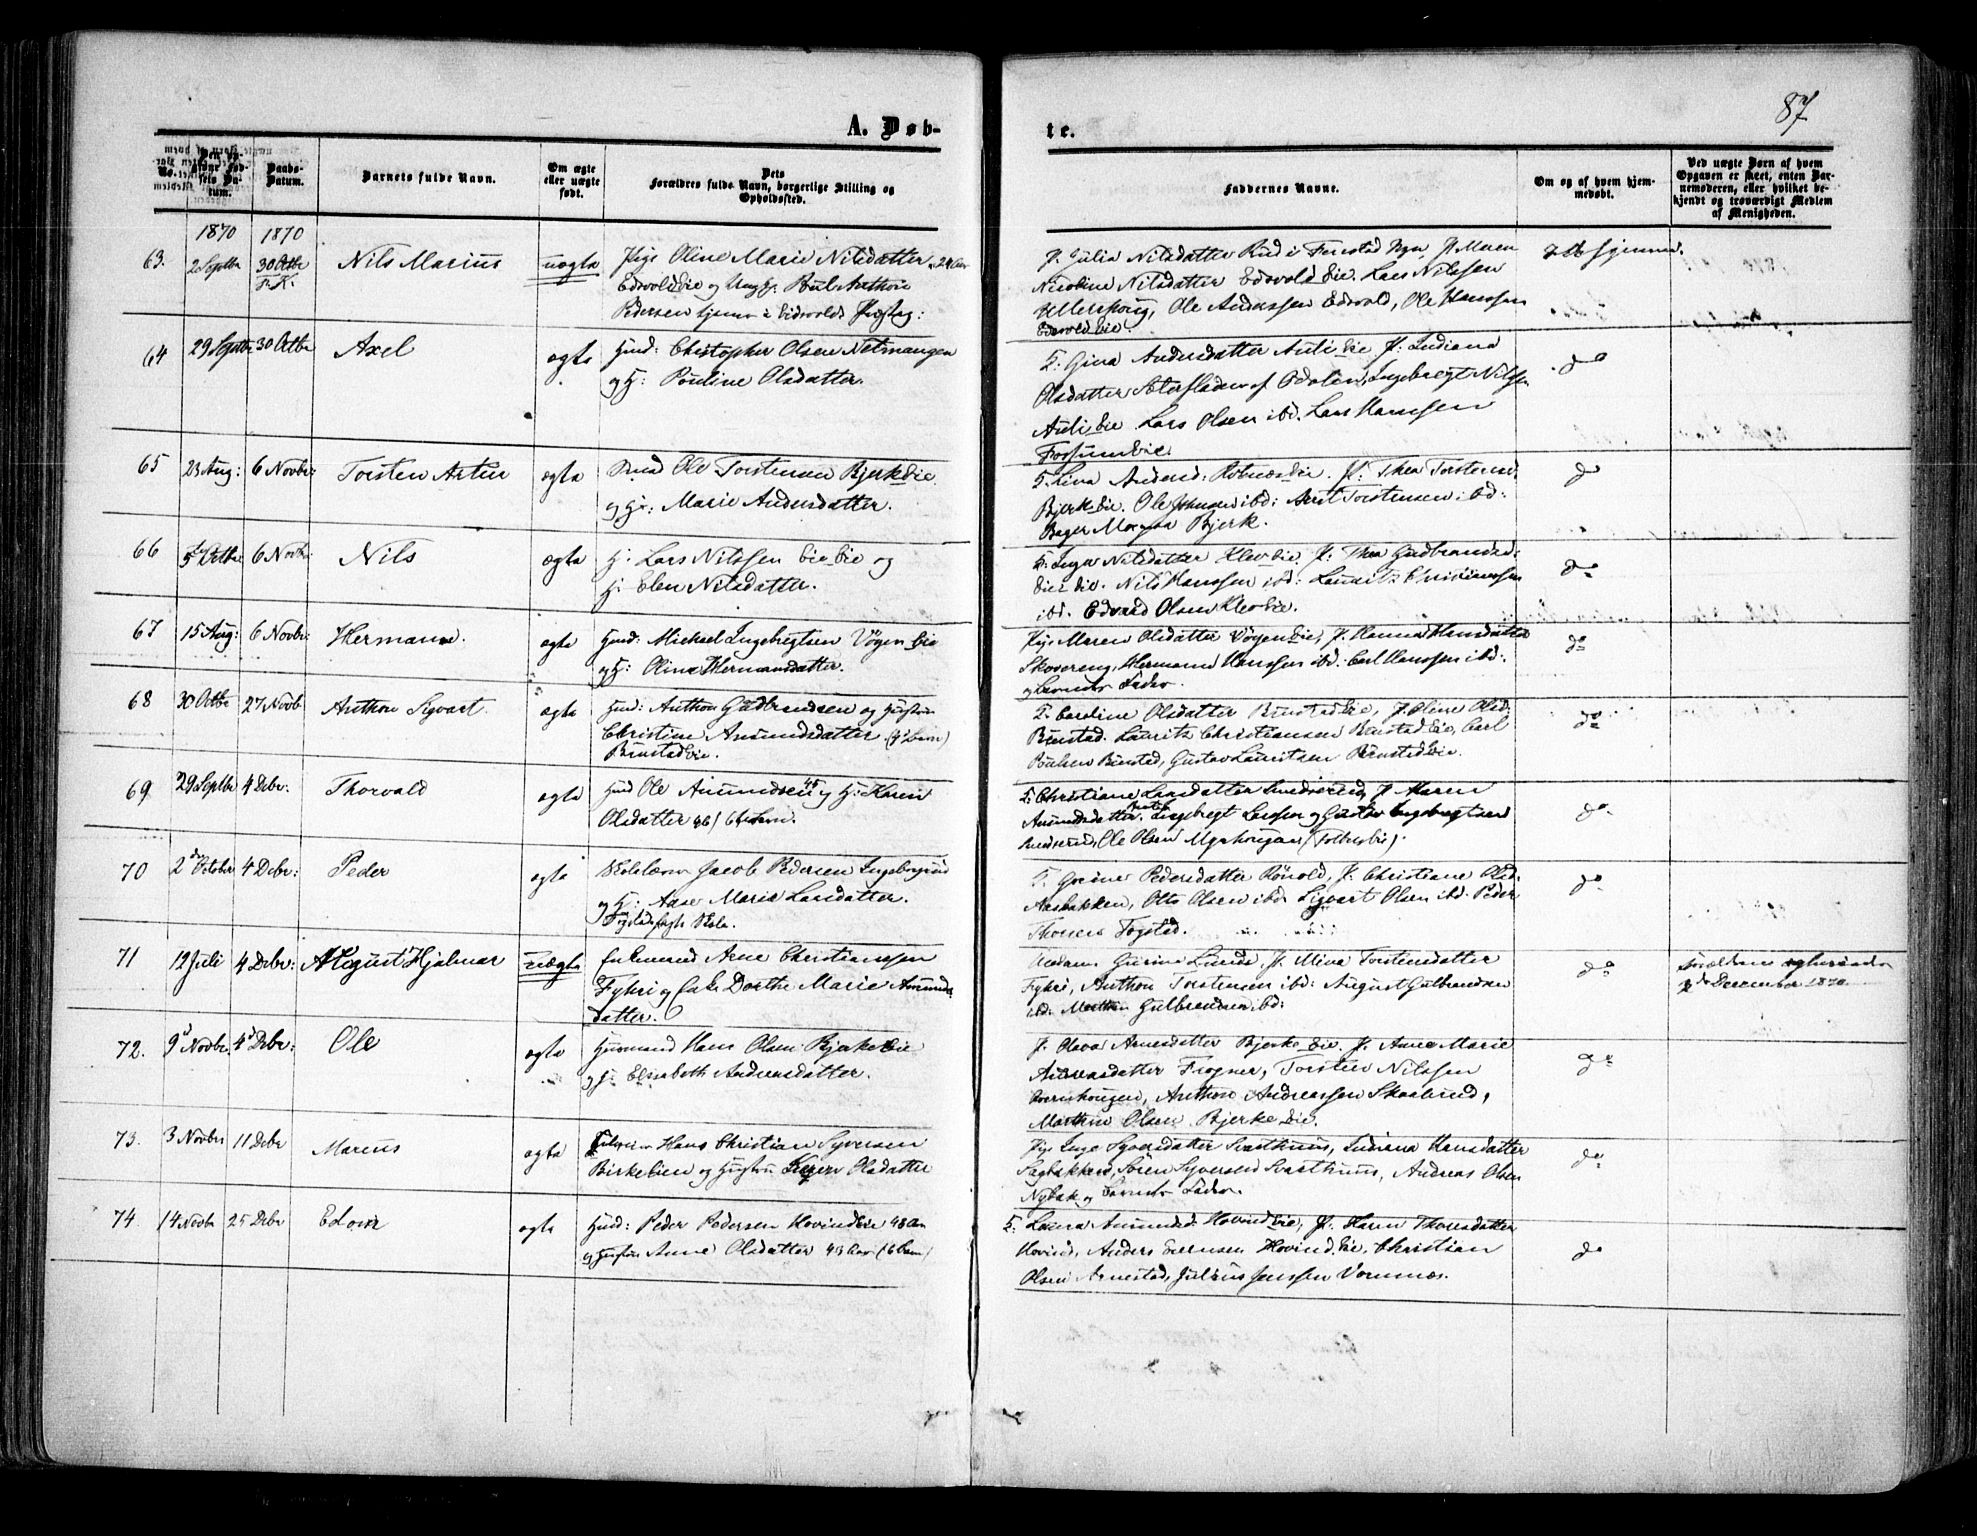 87
A. Døb-
te.
No.
Den opgivne Fødsels Datum.
Daabs-Datum.
Barnets fulde Navn.
Om ægte eller uægte født.
Dets Forældres fulde Navn, borgerlige Stilling og Opholdssted.
Faddernes Navne.
Om og af hvem hjemmedøbt.
Ved uægte Børn af hvem Opgaven er skeet, enten Barnemoderen, eller hvilket bekjendt og troværdigt Medlem af Menigheden.
1870 1870
63. 2 Septbr 30 Octbr Nils Marius uægte Pige Oline Marie Nilsdatter, 24 Aar
F.K. Edsvoldeie og Ungk. Paul Anthon
Pedersen tjener i Eidsvolds
P. Julia Nilsdatter Rud i Fenstad P. Maren
Nicoline Nilsdatter Edsvold Eie. Lars Nilssen
Ullershoug, Ole Anderssen Edsvold, Ole Hanssen
Edsvold Eie.
64 29 Septbr 30 Octbr Axel ægte Huusd: Christopher Olsen Netmangen
og H: Pauline Olsdatter.
G. Gina Andersdatter Auli Eie P: Indiana
Olsdatter af Odalen, Ingebregt Nilsen
Auli Eie. Lars Olsen ibd. Lars Hanssen
Fossum Eie.
do
65 23 Aug: 6 Novbr: Torsten Artur ægte Ole Torstensen Bjerk Eie
og H: Marie Andersdatter.
Lina Andersd. P: Thea Torstensd.
Bjerk Eie. Ole Johnsen ibd: Torstensen ibd:
Bager Bjerk.
do
66 5te Octbr 6 Novbr Nils ægte H: Lars Nilssen Eie og
H: Elen Nilsdatter.
Inga Nilsdatter Klev Eie. P: Thea Gudbrandsd:
Nils Hanssen ibd: Laurits Christianssen
ibd. Edvard Olsen Klev Eie.
do
67 15 Aug: 6 Novbr: Hermann. ægte Huusd: Michael Ingebregtsen Vøyen Eie
og H: Oline Hermansdatter.
Maren Olsdatter Vøyen Eie, P. Hanna Hansdatter
Skovereng, Hermann Hanssen ibd: Carl Hanssen ibd:
og Barnets Fader.
do
68 30 Octbr 27 Novb. Anthon Sigvart. ægte Huusd: Anthon Gudbrandsen og Hustru
Christine Amundsdatter
Brustad Eie.
G. Caroline Olsdatter Brustad Eie, P. Oline Olsd:
Brustad. Laurits Christiansen Brustad Eie, Carl
Poulsen Brustad, Gustav Lauritsen Brustad Eie.
do
69 29 Septbr 4 Debr: Thorvald ægte Huusd Ole Amundsen 45 og H: Karen
Olsdatter 46/ 6te Barn.
G: Christiane Larsdatter P. Maren
Amundsdatter Ingebregt Larssen og Gustav Ingebregtsen
Ole Olsen
do
70 2den October 4 Debr: Peder ægte Skolelærer Jacob Pedersen
og H: Aase Marie Larsdatter.
Skole.
G. Pedersdatter P: Christiane Olsd.
Næsbakken, Otto Olsen ibd. Sigvart Olsen ibd. Peder
Fogstad.
do
71 12 Juli 4 Debr: August Hjalmar uægte Enkemand Arne Christianssen
Fyhri og Enke Dorthe Marie Amunds
datter.
Madam Gurine Lunde, P. Mina Torstensdatter
Fyhri, Anthon Torstensen ibd: August Gulbrandsen
ibd. Gulbrandsen ibd:
do
December 1870
72. 9de Novbr. 4de Debr: Ole ægte Husmand Hans Olsen Bjerke Eie
og H: Elisabeth Andreasdatter.
P. Olava Arnesdatter Bjerke Eie, P. Anne Marie
Andreasdatter Frogner, Torsten Nilssen
Anthon Andreassen Skaalrud,
Marthin Olsen Bjerke Eie.
do
73. 3 Novbr 11 Debr Marcus ægte Hans Christian Syversen
Birkelien og Hustru Olsdatter
Pige Inge Syversdatter Svarthuus, Indiana Hansdatter
Sagbakken, Søren Syversen Svarthuus, Andreas Olsen
Nybak og Barnets Fader.
do
74. 14 Novbr 25 Debr Edvin ægte Huusd: Peder Pedersen Hovind Eie 48 Aar
og Hustru Anne Olsdatter 43 Aar (6 Barn)
G. Laura Amundsd. Hovind Eie, P. Karen Thoresdatter
Hovind, Anders Hovind Eie, Christian
Olsen Arnestad, Julius Jenssen Vormnæs.
do